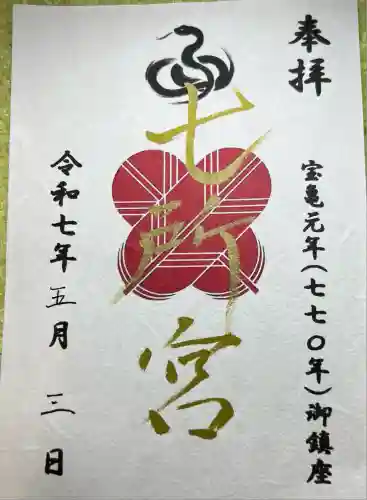 奉拝
宝亀元年(七七〇年)御鎮座
七所宮
令和七年五月三日